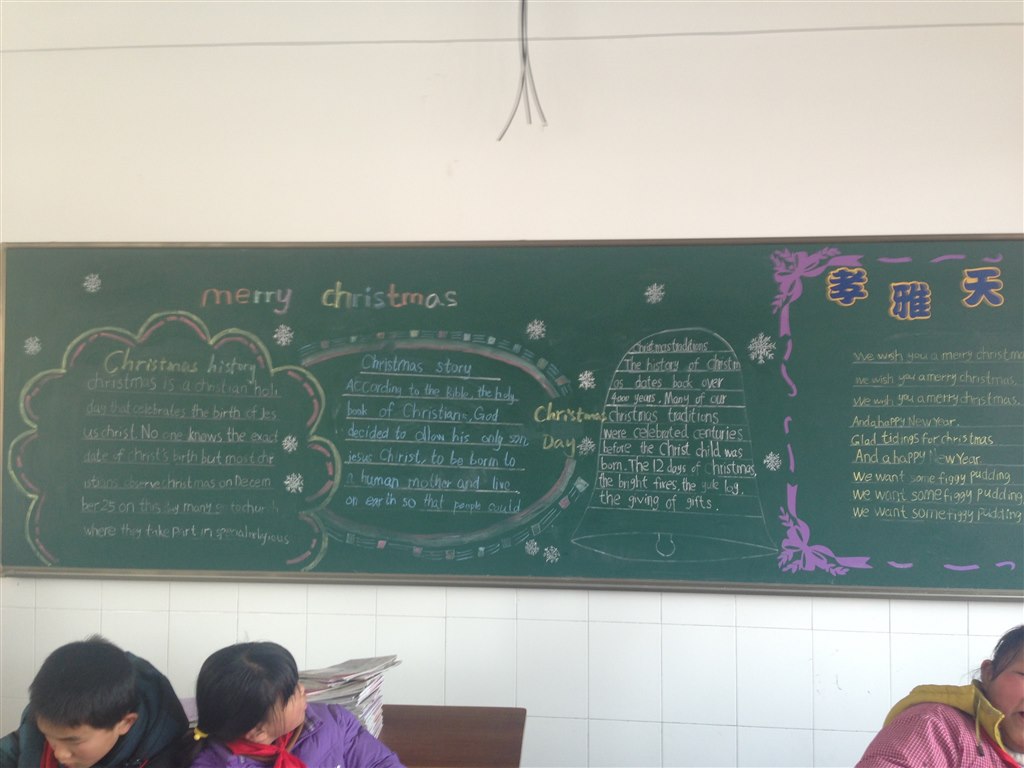 merry christmas
Christmas history
christmas is a christian holi
day that celebrates the birth of Jes
us christ. No one knows the exact
date of christ's birth but most chr
istians observe christmas on Decem
ber 25 on this day many go to church
where they take part in special religious
Christmas story
ACCording to the Bible, the holy
book of Christians, God
decided to allow his only son
jesus Christ, to be born to
a human mother and live
on earth so that people could
Christmas
Day
Christmas traditions
The history of christm
as dates back over
4000 years. Many of our
Christmas traditions
were celebrated centuries
before the Christ child was
born. The 12 days of christmas,
the bright fires, the yule log,
the giving of gifts.
孝雅天
We wish you a merry christma
We wish you a merry christmas.
We wish you a merry christmas.
And a happy New Year.
Glad tidings for christmas
And a happy New Year
We want some figgy pudding
We want some figgy pudding
We want some figgy pudding